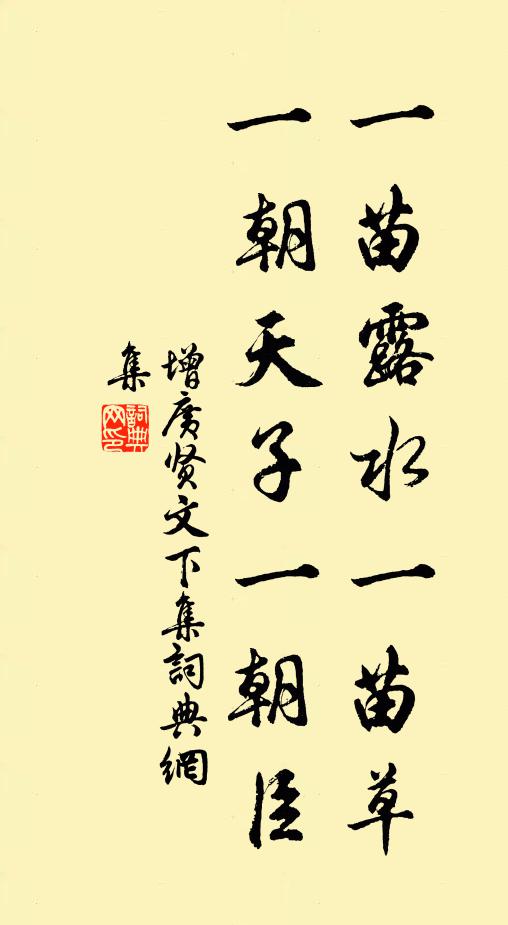 一苗露水一苗草
一朝天子一朝臣
增广贤文下集詞典網
集
詞典
网印